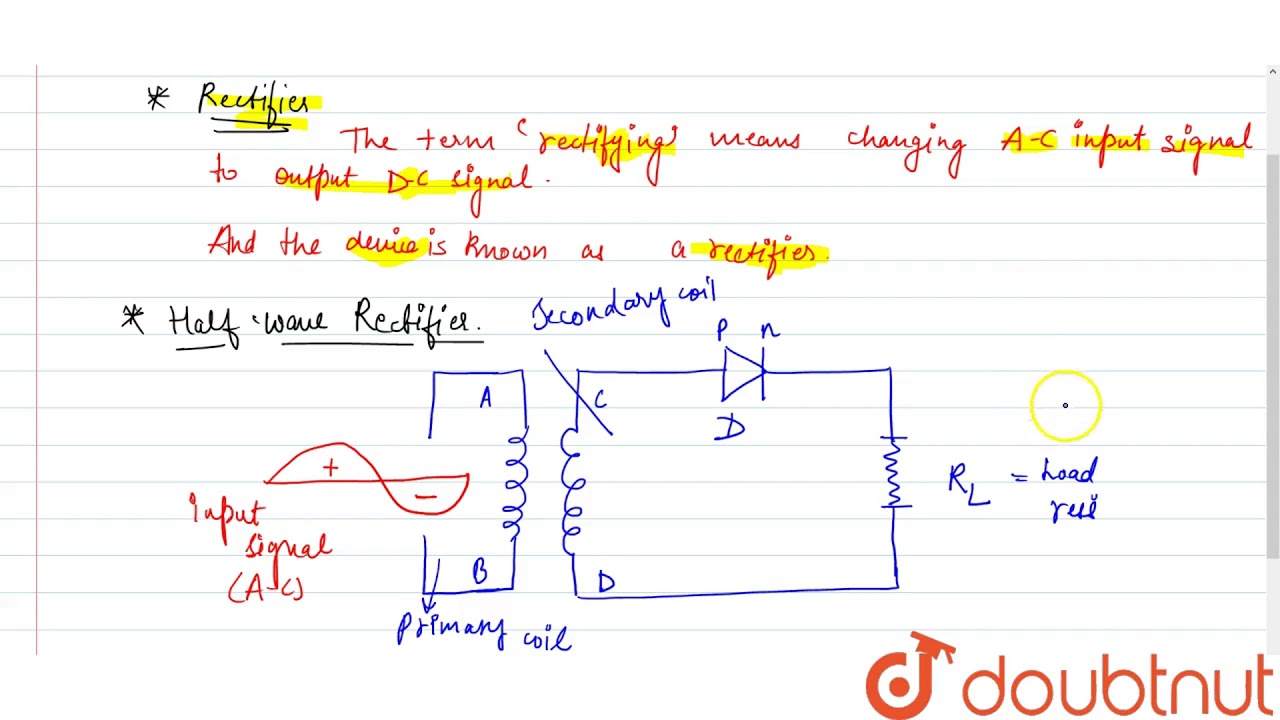 * Rectifier
The term 'rectifying' means changing A-C input signal
to output D-C signal.
And the device is known as a rectifier.
* Half-wave Rectifier.
Secondary coil
P n
A
C
D
+
-
Input
signal
(A-C)
RL = Load
resi
B
D
Primary coil
doubtnut